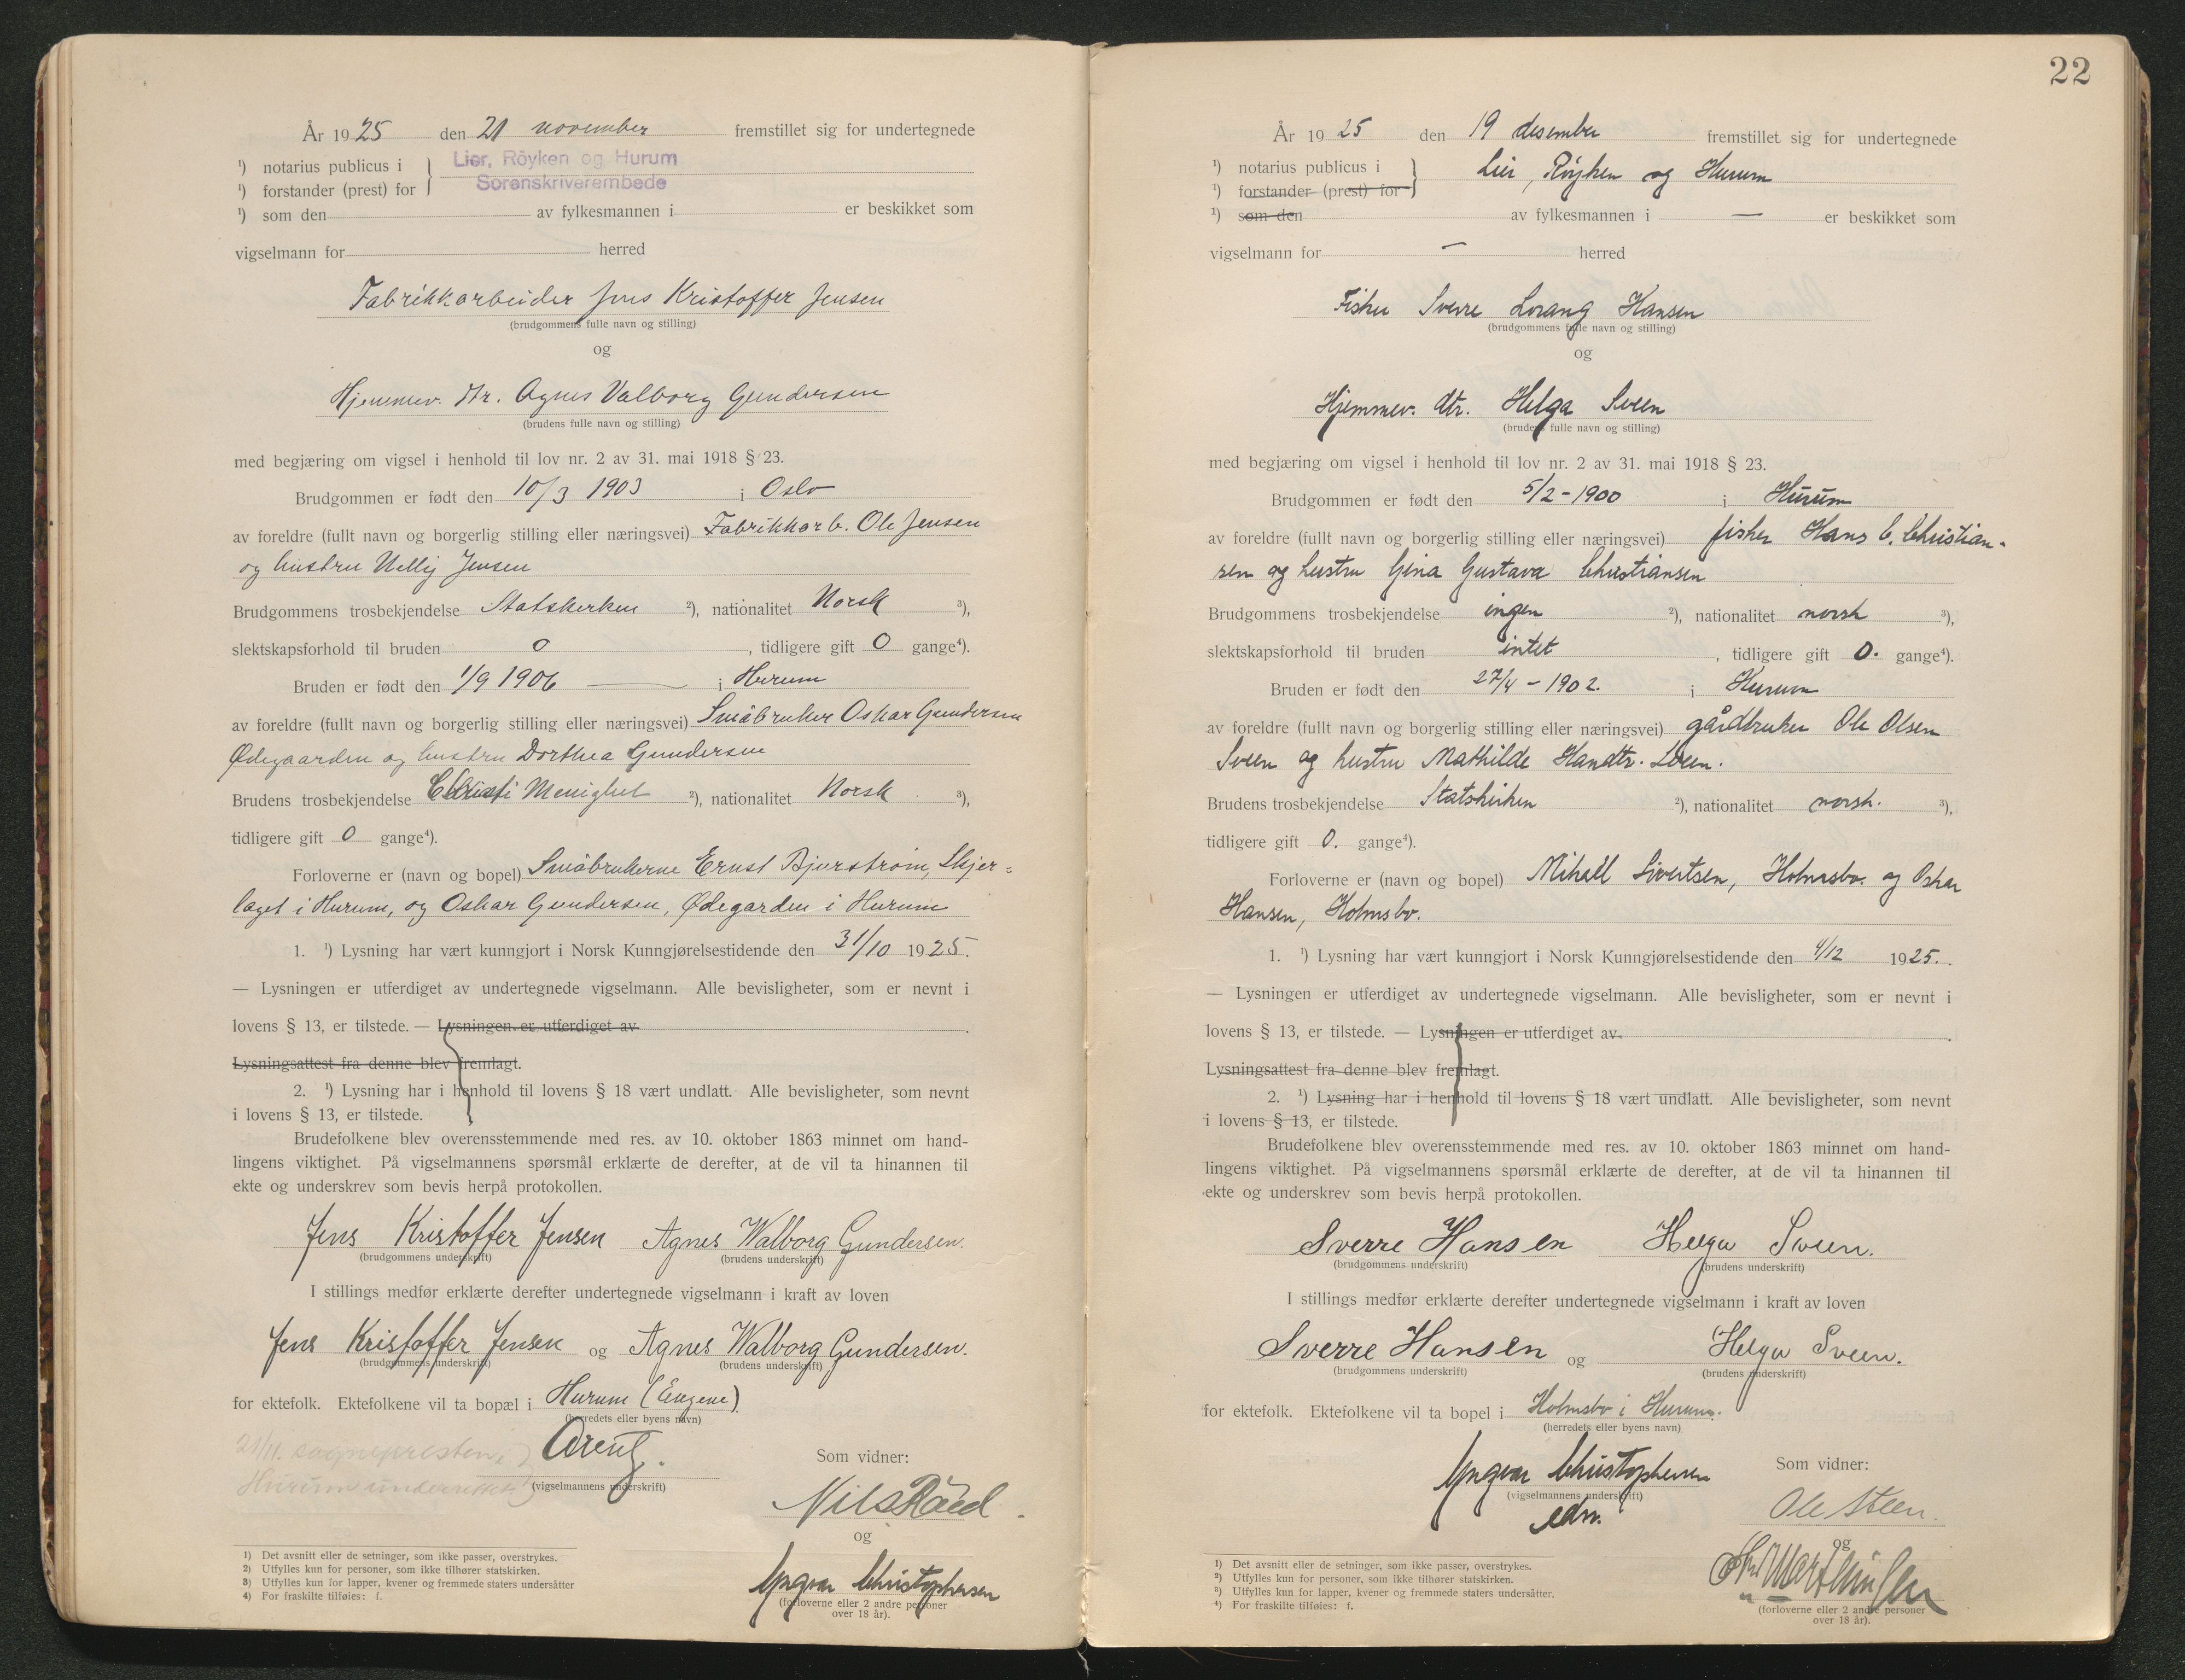 År 1925 den 21 november fremstillet sig for undertegnede
¹) notarius publicus i } Lier, Röyken og Hurum
¹) forstander (prest) for Sorenskriverembede
¹) som den av fylkesmannen i er beskikket som
vigselmann for herred
Fabrikkarbeider Jens Kristoffer Jensen
(brudgommens fulle navn og stilling)
og
Hjemmev. dtr. Agnes Valborg Gundersen
(brudens fulle navn og stilling)
med begjæring om vigsel i henhold til lov nr. 2 av 31. mai 1918 § 23.
Brudgommen er født den 10/3 1903 i Oslo
av foreldre (fullt navn og borgerlig stilling eller næringsvei) Fabrikkarb. Ole Jensen
og hustru Nelly Jensen
Brudgommens trosbekjendelse Statskirken ²), nationalitet Norsk ³),
slektskapsforhold til bruden 0, tidligere gift 0 gange⁴).
Bruden er født den 1/9 1906 — i Hurum
av foreldre (fullt navn og borgerlig stilling eller næringsvei) Småbruker Oskar Gundersen
Ødegaarden og hustru Dorthea Gundersen
Brudens trosbekjendelse Christi Menighet ²), nationalitet Norsk ³),
tidligere gift 0 gange⁴).
Forloverne er (navn og bopel) Småbrukerne Ernst Bjerstrøm, Skjer-
laget i Hurum, og Oskar Gundersen, Ødegarden i Hurum
1. ¹) Lysning har vært kunngjort i Norsk Kunngjørelsestidende den 31/10 1925.
— Lysningen er utferdiget av undertegnede vigselmann. Alle bevisligheter, som er nevnt i
lovens § 13, er tilstede. — Lysningen er utferdiget av
Lysningsattest fra denne blev fremlagt.
2. ¹) Lysning har i henhold til lovens § 18 vært undlatt. Alle bevisligheter, som nevnt
i lovens § 13, er tilstede.
Brudefolkene blev overensstemmende med res. av 10. oktober 1863 minnet om hand-
lingens viktighet. På vigselmannens spørsmål erklærte de derefter, at de vil ta hinannen til
ekte og underskrev som bevis herpå protokollen.
Jens Kristoffer Jensen Agnes Walborg Gundersen.
(brudgommens underskrift) (brudens underskrift)
I stillings medfør erklærte derefter undertegnede vigselmann i kraft av loven
Jens Kristoffer Jensen og Agnes Walborg Gundersen.
(brudgommens underskrift) (brudens underskrift)
for ektefolk. Ektefolkene vil ta bopæl i Hurum (Engene)
(herredets eller byens navn)
21/11. sognepresten i Arentz. Som vidner:
Hurum underrettet (vigselmannens underskrift)
Nils Råed
og
Yngvar Christophersen
(forloverne eller 2 andre personer
over 18 år).
1) Det avsnitt eller de setninger, som ikke passer, overstrykes.
2) Utfylles kun for personer, som ikke tilhører statskirken.
3) Utfylles kun for lapper, kvener og fremmede staters undersåtter
4) For fraskilte tilføies: f.
22
År 1925 den 19 desember fremstillet sig for undertegnede
¹) notarius publicus i } Lier, Röyken og Hurum
¹) forstander (prest) for
¹) som den av fylkesmannen i — er beskikket som
vigselmann for — herred
Fisker Sverre Lorang Hansen
(brudgommens fulle navn og stilling)
og
Hjemmev. dtr. Helga Sveen
(brudens fulle navn og stilling)
med begjæring om vigsel i henhold til lov nr. 2 av 31. mai 1918 § 23.
Brudgommen er født den 5/2 - 1900 i Hurum
av foreldre (fullt navn og borgerlig stilling eller næringsvei) fisker Hans C. Christian-
sen og hustru Gina Gustava Christiansen
Brudgommens trosbekjendelse ingen ²), nationalitet norsk ³),
slektskapsforhold til bruden intet, tidligere gift 0. gange⁴).
Bruden er født den 27/4 - 1902. i Hurum
av foreldre (fullt navn og borgerlig stilling eller næringsvei) gårdbruker Ole Olsen
Sveen og hustru Mathilde Hansdtr. Sveen.
Brudens trosbekjendelse Statskirken ²), nationalitet norsk. ³),
tidligere gift 0. gange⁴).
Forloverne er (navn og bopel) Mikall Sivertsen, Holmsbo. og Oskar
Hansen, Holmsbo.
1. ¹) Lysning har vært kunngjort i Norsk Kunngjørelsestidende den 4/12 1925.
— Lysningen er utferdiget av undertegnede vigselmann. Alle bevisligheter, som er nevnt i
lovens § 13, er tilstede. — Lysningen er utferdiget av
Lysningsattest fra denne blev fremlagt.
2. ¹) Lysning har i henhold til lovens § 18 vært undlatt. Alle bevisligheter, som nevnt
i lovens § 13, er tilstede.
Brudefolkene blev overensstemmende med res. av 10. oktober 1863 minnet om hand-
lingens viktighet. På vigselmannens spørsmål erklærte de derefter, at de vil ta hinannen til
ekte og underskrev som bevis herpå protokollen.
Sverre Hansen Helga Sveen.
(brudgommens underskrift) (brudens underskrift)
I stillings medfør erklærte derefter undertegnede vigselmann i kraft av loven
Sverre Hansen og Helga Sveen.
(brudgommens underskrift) (brudens underskrift)
for ektefolk. Ektefolkene vil ta bopel i Holmsbo i Hurum.
(herredets eller byens navn)
Yngvar Christophersen Som vidner:
(vigselmannens underskrift)
edsv. Ole Steen.
og
Marthinsen
(forloverne eller 2 andre personer
over 18 år).
1) Det avsnitt eller de setninger, som ikke passer, overstrykes.
2) Utfylles kun for personer, som ikke tilhører statskirken.
3) Utfylles kun for lapper, kvener og fremmede staters undersåtter.
4) For fraskilte tilføies: f.